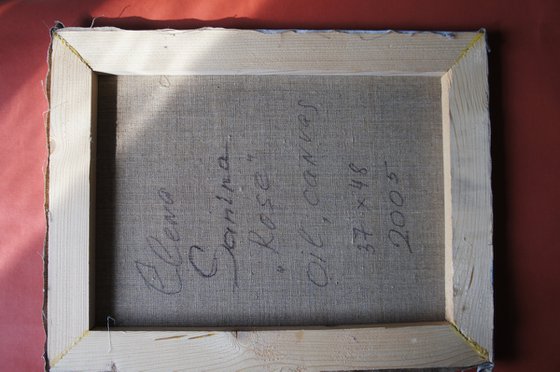 Elena
Sanina
"Rose"
oil, canvas
37 x 48
2005